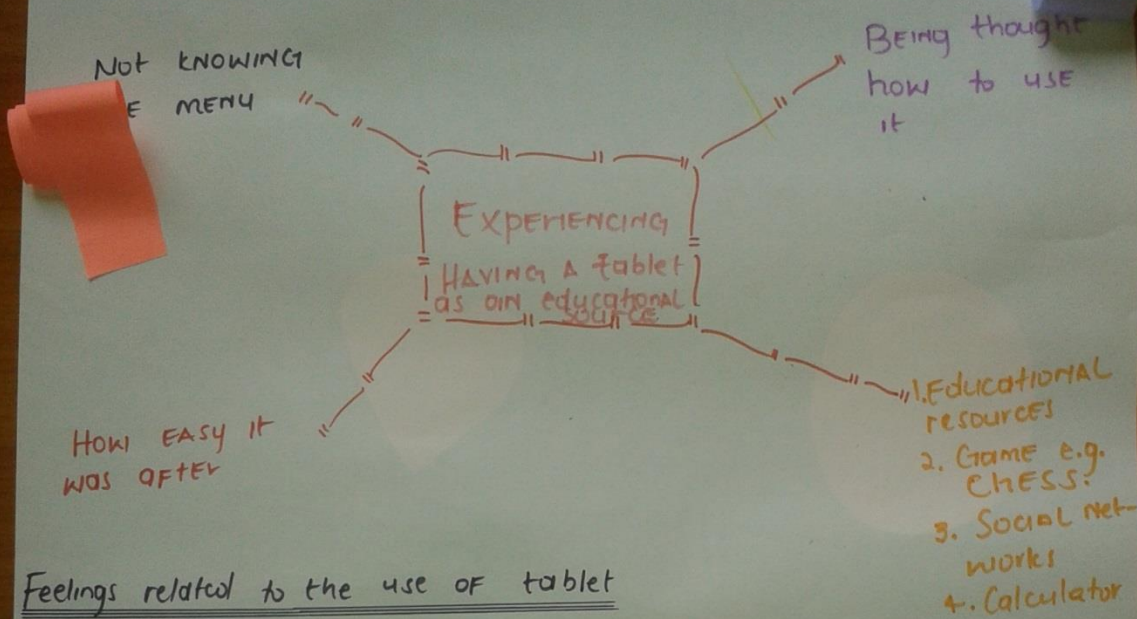 Not KNOWING
E MENU
BEING thought
how to USE
it
EXPERIENCING
HAVING A tablet
as AN educational
SOURCE
HOW EASY It
was AFTER
1. EDUCATIONAL
resources
2. GAME e.g.
CHESS.
3. SOCIAL Net-
works
4. Calculator
Feelings related to the use OF tablet